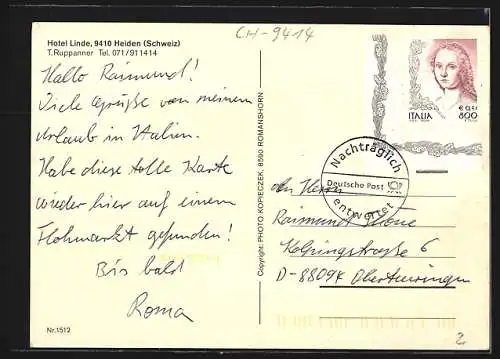 CH-9414
Hotel Linde, 9410 Heiden (Schweiz)
T. Ruppanner Tel. 071/911414
Hallo Raimund!
Viele Grüße von meinem
Urlaub in Italien.
Habe diese tolle Karte
wieder hier auf einem
Flohmarkt gefunden!
Bis bald
Roma
Nr. 1512
Copyright: PHOTO KOPIECZEK, 8590 ROMANSHORN
ITALIA
800
Nachträglich
Deutsche Post
entwertet
Herrn
Raimund
Kolpingstraße 6
D-88094 Oberteuringen
2